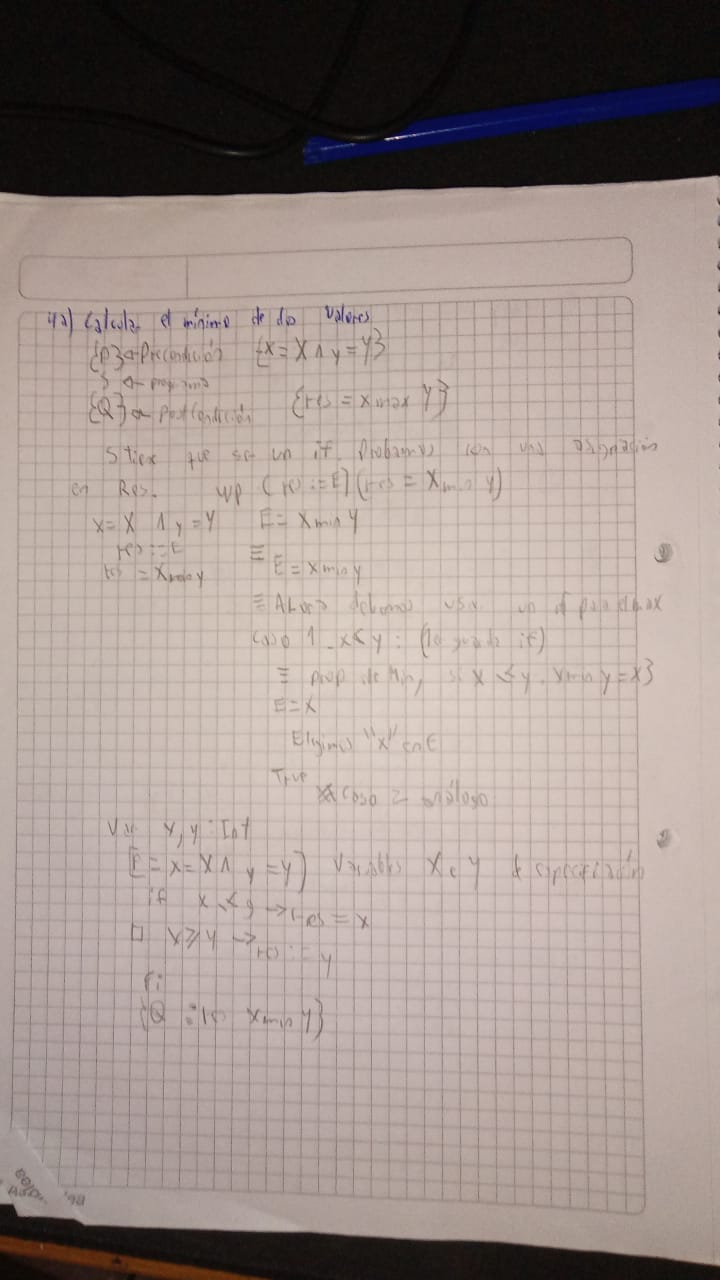 4a) Calcular el mínimo de dos valores
{P} Precondición {x = X ∧ y = Y}
S programa
{Q} Postcondición {res = X max Y}
S tiene que ser un if. Probamos con una asignación
en Res. wp (res := E) (res = X min Y)
x = X ∧ y = Y E = X min Y
res := E ≡
res = X min Y E = x min y
≡ debemos usar un if
caso 1 x ≤ y: (la guarda if)
≡ prop de Min, si x ≤ y. x min y = x}
E = x
Elegimos "x" en E
True
caso 2 análogo
Var x, y: Int
[P = x = X ∧ y = Y] Variables X e Y especificación
if x ≤ y → res = x
[] x ≥ y → res := y
fi
{Q : res X min Y}